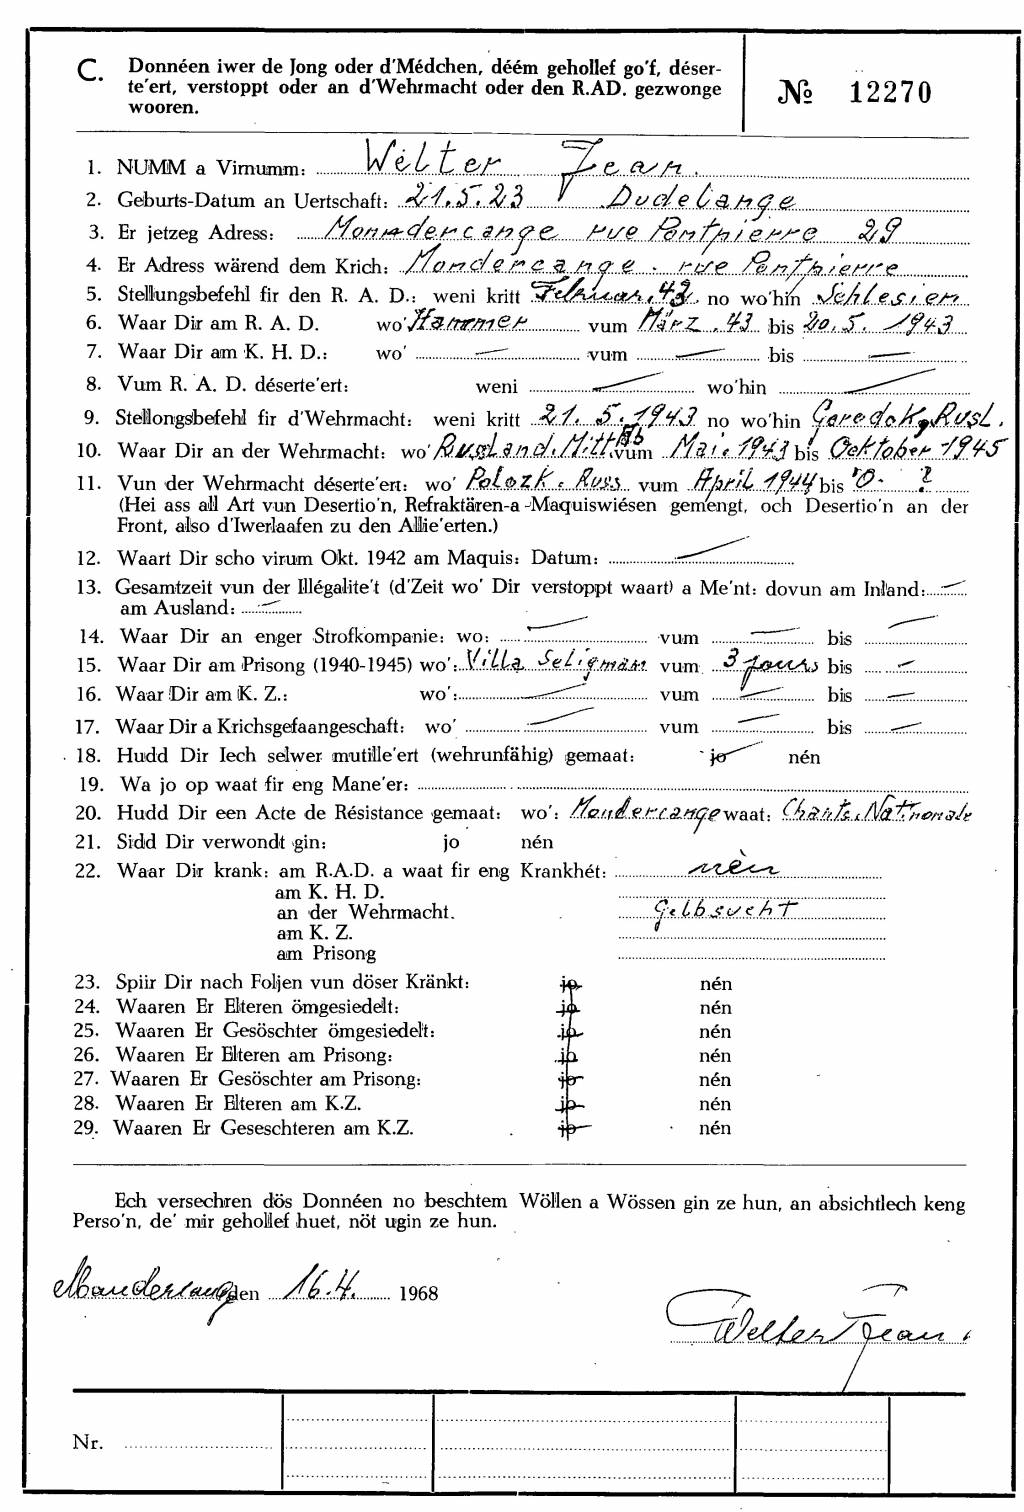 C. Donnéen iwer de Jong oder d'Médchen, déém gehollef go'f, déser-
te'ert, verstoppt oder an d'Wehrmacht oder den R.AD. gezwonge
wooren.
№ 12270
1. NUMM a Virnumm: Welter Jean.
2. Geburts-Datum an Uertschaft: 21.5.23 Dudelange
3. Er jetzeg Adress: Mondercange rue Pontpierre 29
4. Er Adress wärend dem Krich: Mondercange. rue Pontpierre
5. Stellungsbefehl fir den R. A. D.: weni kritt Februar. 43. no wo'hin Schlesien
6. Waar Dir am R. A. D. wo' Hammer vum März. 43 bis 20.5. 1943
7. Waar Dir am K. H. D.: wo' — vum — bis —
8. Vum R. A. D. déserte'ert: weni — wo'hin —
9. Stellongsbefehl fir d'Wehrmacht: weni kritt 21. 5. 1943 no wo'hin Gorodok, Rusl.
10. Waar Dir an der Wehrmacht: wo' Russland. Mitt. Ab vum Mai. 1943 bis Ocktober 1945
11. Vun der Wehrmacht déserte'ert: wo' Polozk. Russ vum April 1944 bis O- ?
(Hei ass all Art vun Desertio'n, Refraktären-a -Maquiswiésen gemengt, och Desertio'n an der
Front, also d'Iwerlaafen zu den Allie'erten.)
12. Waart Dir scho virum Okt. 1942 am Maquis: Datum: —
13. Gesamtzeit vun der Illégalite't (d'Zeit wo' Dir verstoppt waart) a Me'nt: dovun am Inland: —
am Ausland: —
14. Waar Dir an enger Strofkompanie: wo: — vum — bis —
15. Waar Dir am Prisong (1940-1945) wo': Villa Seligman vum 3 jours bis —
16. Waar Dir am K. Z.: wo': — vum — bis —
17. Waar Dir a Krichsgefaangeschaft: wo' — vum — bis —
18. Hudd Dir Iech selwer mutille'ert (wehrunfähig) gemaat: jo nén
19. Wa jo op waat fir eng Mane'er:
20. Hudd Dir een Acte de Résistance gemaat: wo': Mondercange waat: Chants. Nationale
21. Sidd Dir verwondt gin: jo nén
22. Waar Dir krank: am R.A.D. a waat fir eng Krankhét: nèn
am K. H. D.
an der Wehrmacht. Gelbsucht
am K. Z.
am Prisong
23. Spiir Dir nach Foljen vun döser Kränkt: jo nén
24. Waaren Er Elteren ömgesiedelt: jo nén
25. Waaren Er Gesöschter ömgesiedelt: jo nén
26. Waaren Er Elteren am Prisong: jo nén
27. Waaren Er Gesöschter am Prisong: jo nén
28. Waaren Er Elteren am K.Z. jo nén
29. Waaren Er Geseschteren am K.Z. jo nén
Ech versechren dös Donnéen no beschtem Wöllen a Wössen gin ze hun, an absichtlech keng
Perso'n, de' mir gehollef huet, nöt ugin ze hun.
Mondercange den 16.4. 1968
Welter Jean
Nr.